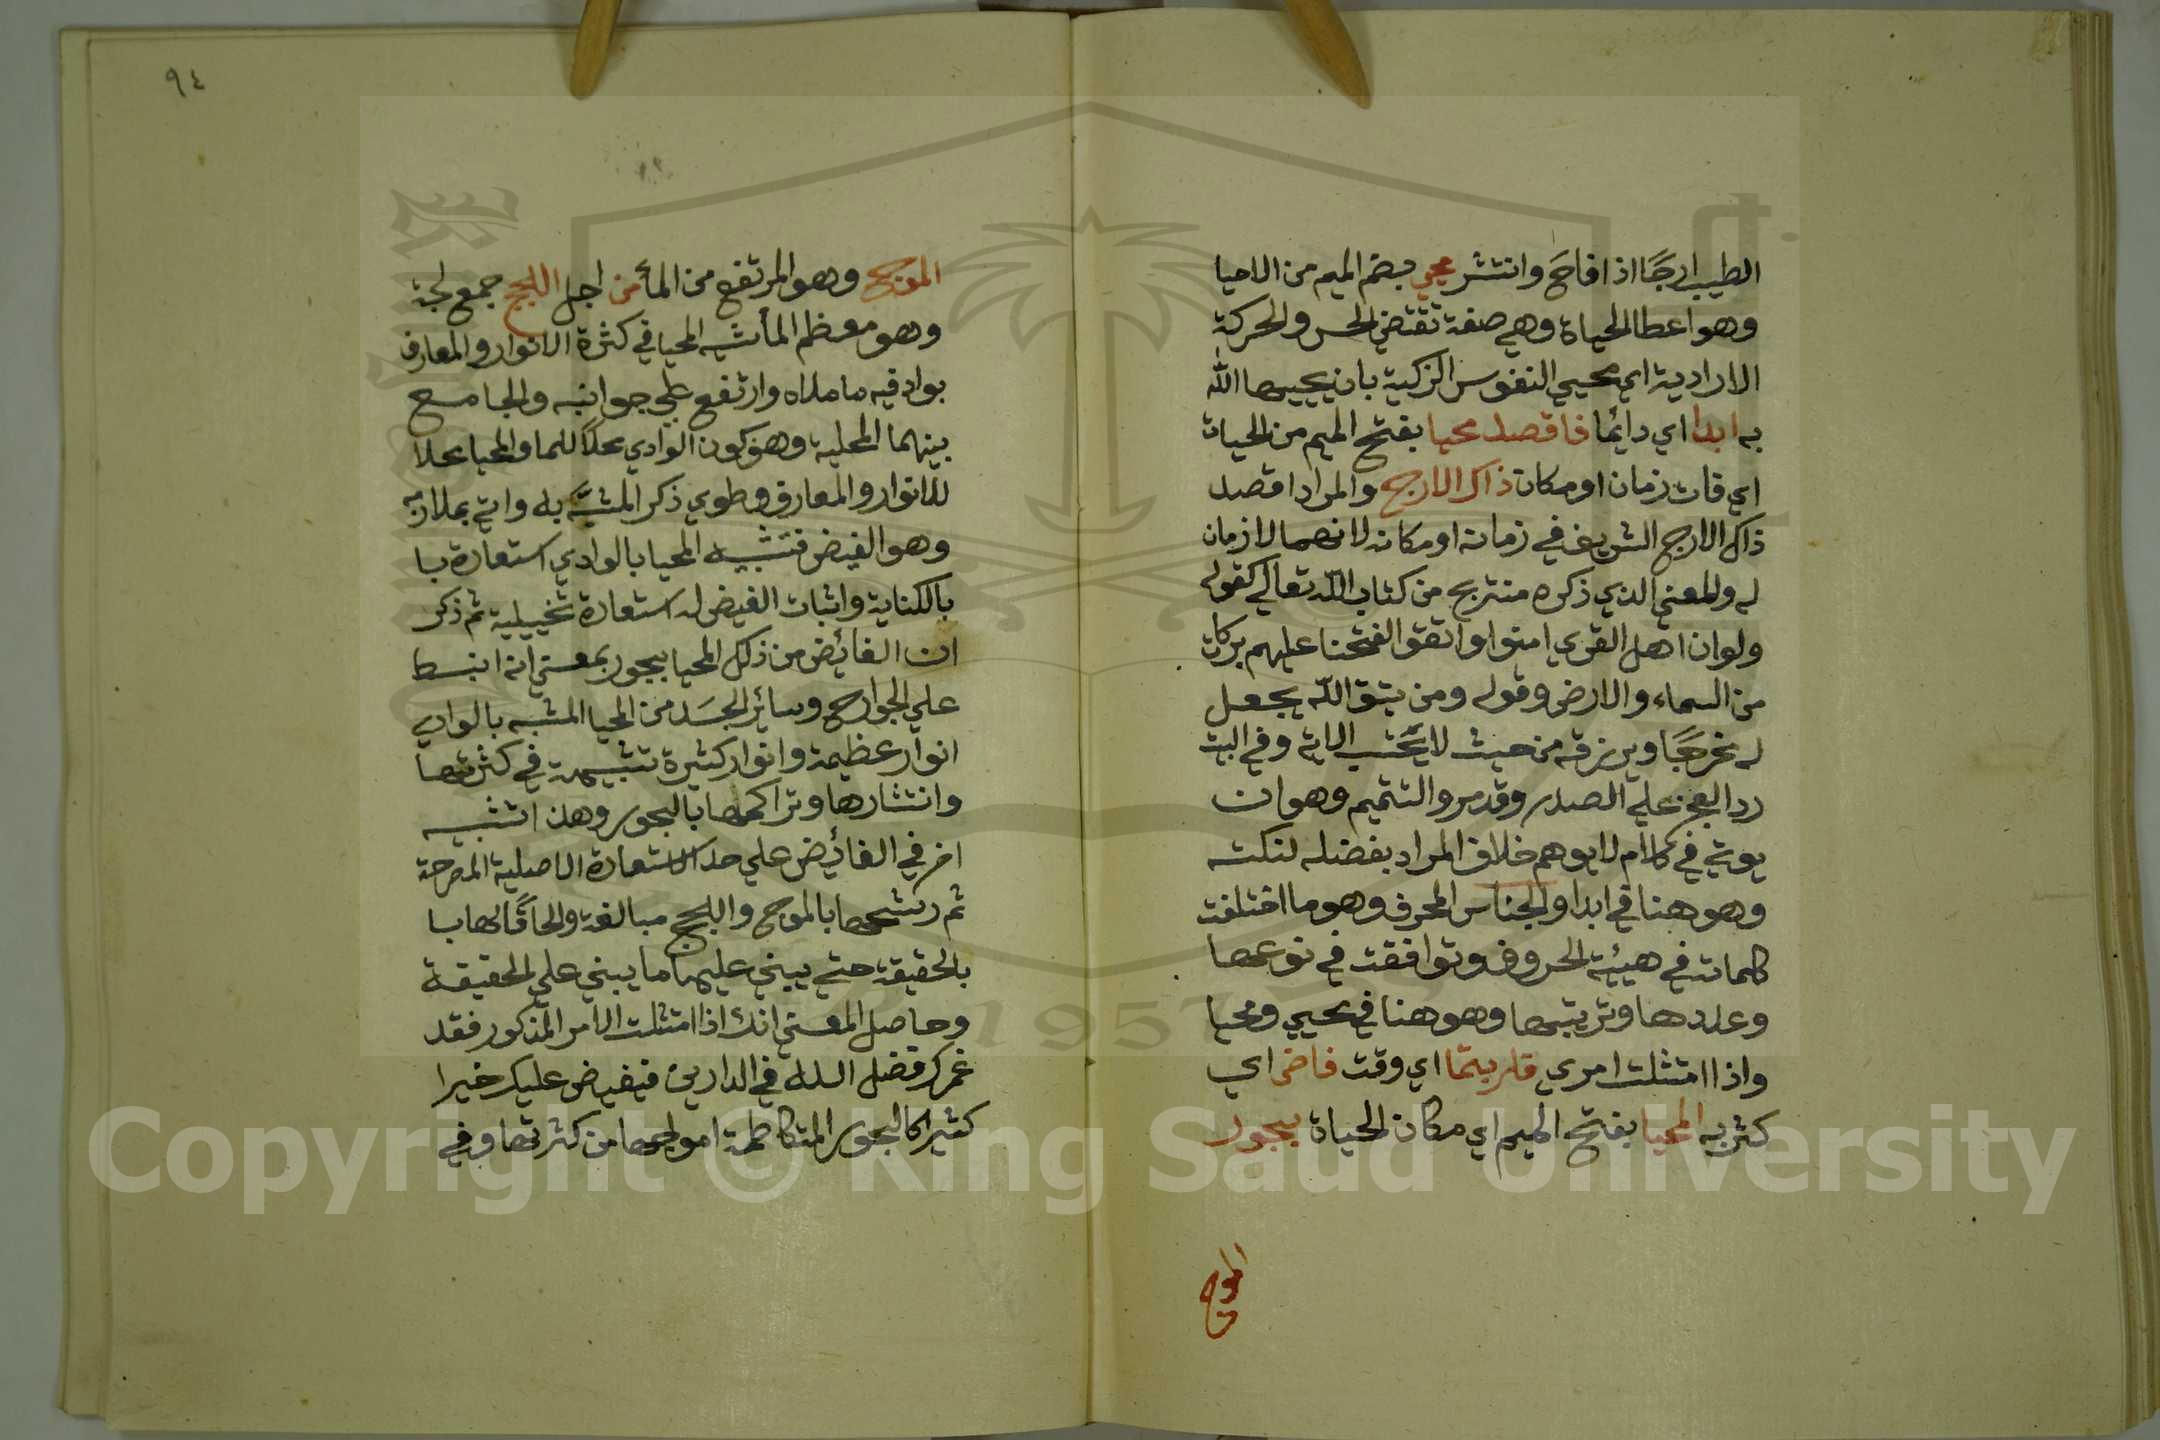 الطيب ارجًا اذا فاح وانتشر محيي بضم الميم من الاحيا
وهو اعطا الحياة وهي صفة تقتضي الحس والحركة
الارادية اي محيي النفوس الزكية بان يحييها الله
به ابدا اي دائما فاقصد محيا بفتح الميم من الحياة
اي قات زمان او مكان ذاك الارج والمراد اقصد
ذاك الارج الشريف في زمانه او مكانه لانهما لازمان
له والمعني الذي ذكره منتزع من كتاب الله تعالي كقوله
ولو ان اهل القري امنوا واتقوا لفتحنا عليهم بركات
من السماء والارض وقوله ومن يتق الله يجعل
له مخرجًا ويرزقه من حيث لا يحتسب الاتي وفي البيت
رد العجز علي الصدر وقد مر والتتميم وهو ان
يوتي في كلام لا يوهم خلاف المراد بفضله لنكتة
وهو هنا في ابدا والجناس المحرف وهو ما اختلفت
كلماته في هيئة الحروف وتوافقت في نوعها
وعددها وترتيبها وهو هنا في محيي ومحيا
واذا امتثلت امري فلربتما اي وقت فاض اي
كثر به المحيا بفتح الميم اي مكان الحياة ببحور
الموج
٩٤
الموج وهو المرتفع من الماء من اجل اللجج جمع لجة
وهو معظم الماء شبه المحيا في كثرة الانوار والمعارف
بواد فيه ما ملاه وارتفع علي جوانبه والجامع
بينهما المحلية وهو كون الوادي محلاً للما والمحيا محلا
للانوار والمعارف وطوي ذكر المشبَّه به واتي بملازمه
وهو الفيض فتشبيه المحيا بالوادي استعارة با
بالكناية واثبات الفيض له استعارة تخييلية ثم ذكر
ان الفائض من ذلك المحيا ببحور بمعني انه انبسط
علي الجوارح وسائر الجسَد من المحيا المشبه بالوادي
انوار عظيمة وانوار كثيرة تشبيهة في كثرتها
وانتشارها وتراكمها بالبحور وهذا تشبيه
اخر في الفائض علي حد الاستعارة الاصلية المصرحة
ثم رشحها بالموج واللجج مبالغة والحاقًا لها با
بالحقيقة حتي يبني عليها ما يبني علي الحقيقة
وحاصل المعني انك اذا امتثلت الامر المذكور فقد
غمرك فضل الله في الدارين فيفيض عليك خيرا
كثيرا كالبحور المتلاطمة امواجها من كثرتها وفي